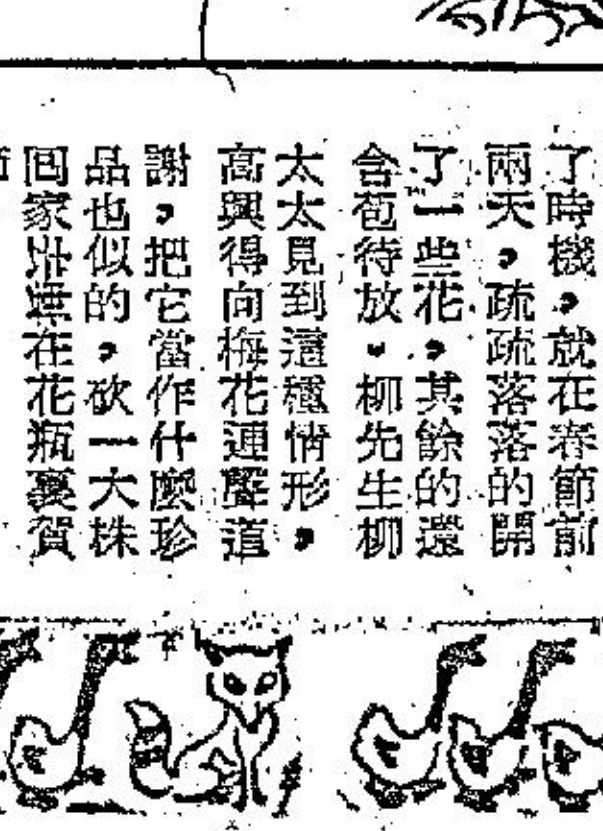 了時機，就在春節前
兩天，疏疏落落的開
了一些花，其餘的還
含苞待放。柳先生柳
太太見到這種情形，
高興得向梅花連聲道
謝，把它當作什麼珍
品也似的，砍一大株
回家供在花瓶裏賀